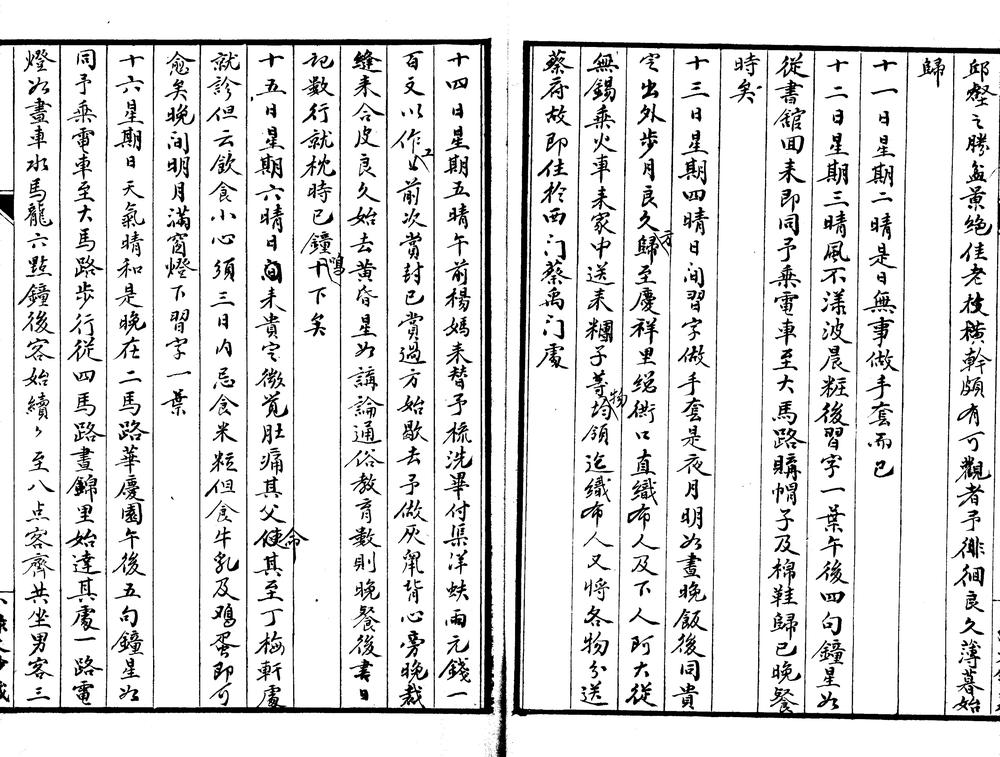 邱壑之勝盆景絕佳老枝橫幹頗有可觀者予徘徊良久薄暮始
歸
十一日星期二晴是日無事做手套而已
十二日星期三晴風不漾波晨粧後習字一葉午後四句鐘星如
從書館回来即同予乘電車至大馬路購帽子及棉鞋歸已晚餐
時矣
十三日星期四晴日间習字做手套是夜月明如晝晚飯後同貴
定出外步月良久方歸至慶祥里衖口直織布人及下人阿大從
無錫乘火車来家中送来糰子等物均領迄織布人又將各物分送
蔡府故即住於西门蔡禹门處
十四日星期五晴午前楊媽来替予梳洗畢付渠洋蚨兩元錢一
百文以作工前次賞封已賞過方始歇去予做灰鼠背心旁晚裁
縫来合皮良久始去黃昏星如講論通俗教育數則晚餐後書日
記數行就枕時已鐘鳴十下矣
十五日星期六晴日间来貴定微覚肚痛其父命使其至丁梅軒處
就診但云飲食小心須三日内忌食米粒但食牛乳及鸡蛋即可
愈矣晚间明月滿窗燈下習字一葉
十六星期日天氣晴和是晚在二馬路華慶園午後五句鐘星如
同予乘電車至大馬路步行從四馬路晝錦里始達其處一路電
燈如晝車水馬龍六點鐘後客始續々至八点客齊共坐男客三